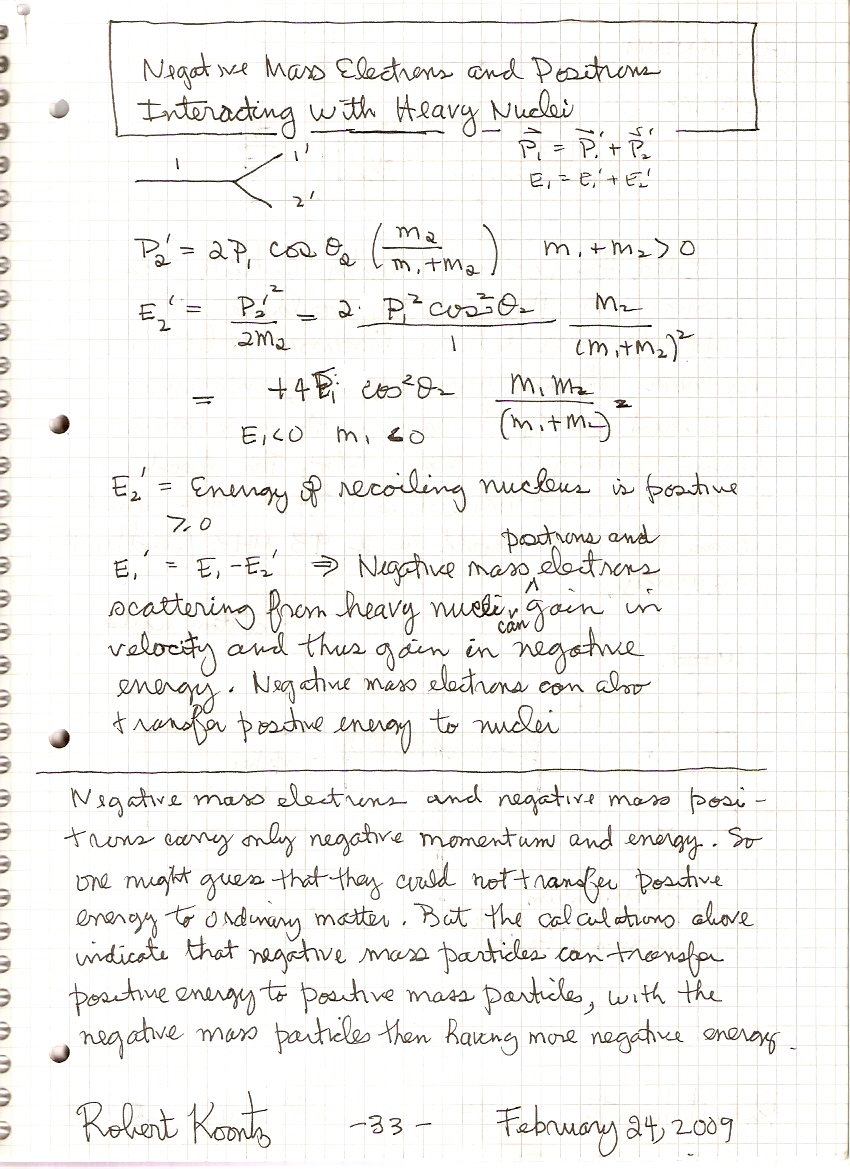 Negative Mass Electrons and Positrons
Interacting with Heavy Nuclei
1 1' 2'
P⃗₁ = P⃗₁' + P⃗₂'
E₁ = E₁' + E₂'
P₂' = 2P₁ cos θ₂ (m₂ / (m₁+m₂)) m₁+m₂>0
E₂' = P₂'² / 2m₂ = 2· P₁² cos²θ₂ / 1 M₂ / (m₁+m₂)²
= +4E₁ cos²θ₂ m₁m₂ / (m₁+m₂)²
E₁<0 m₁<0
E₂' = Energy of recoiling nucleus is positive
≥0
positrons and
E₁' = E₁-E₂' ⇒ Negative mass ^ electrons
scattering from heavy nuclei can gain in
velocity and thus gain in negative
energy. Negative mass electrons can also
transfer positive energy to nuclei
Negative mass electrons and negative mass posi-
trons carry only negative momentum and energy. So
one might guess that they could not transfer positive
energy to ordinary matter. But the calculations above
indicate that negative mass particles can transfer
positive energy to positive mass particles, with the
negative mass particles then having more negative energy.
Robert Koontz -33- February 24, 2009